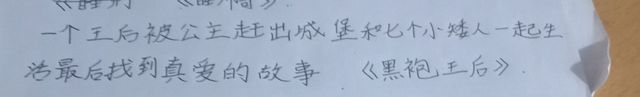 一个王后被公主赶出城堡和七个小矮人一起生
活最后找到真爱的故事 《黑袍王后》.